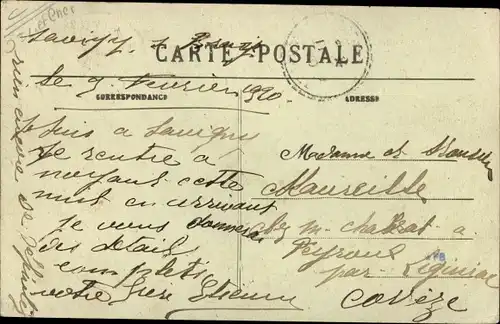 Savigy s Braye
CARTE POSTALE
le 9 Fevrier 1920
CORRESPONDANCE
ADRESSE
Je suis a Savigny
Je rentre a
noyant cette
nuit en arrivant
je vous donnerai
des détails
complets
votre frère Etienne
rien encore de
Madame et Monsieur
Maureille
chez m. chabrat a
Peyroux
par Liginiac
Corrèze